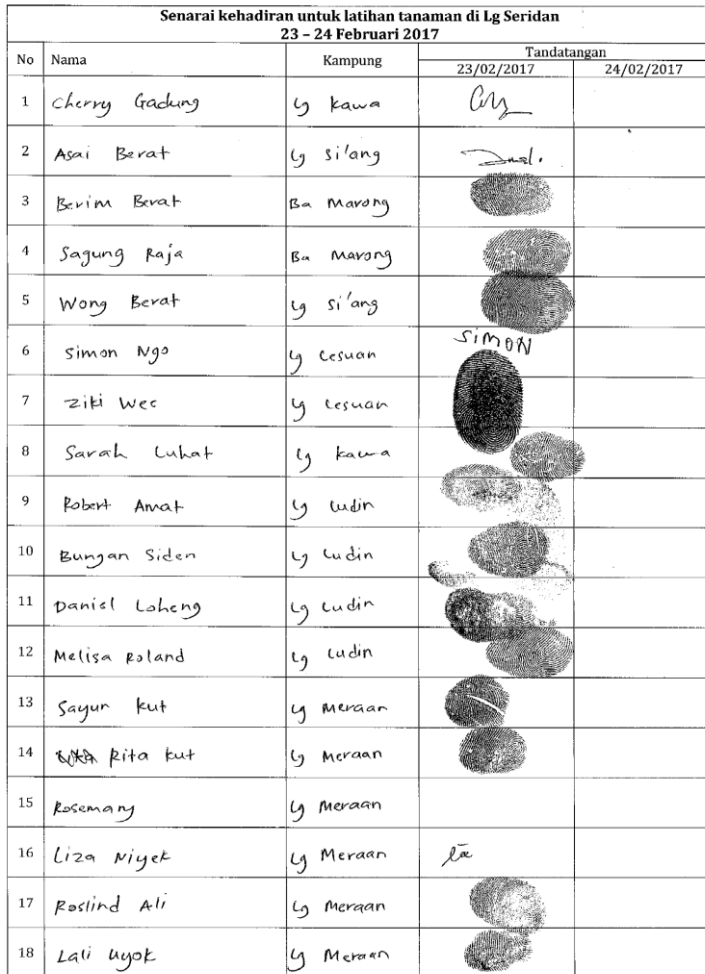 Senarai kehadiran untuk latihan tanaman di Lg Seridan
23 – 24 Februari 2017
No Nama Kampung Tandatangan
23/02/2017 24/02/2017
1 Cherry Gadung Lg Kawa
2 Asai Berat Lg Si'ang
3 Berim Berat Ba Marong
4 Sagung Raja Ba Marong
5 Wong Berat Lg Si'ang
6 Simon Ngo Lg Lesuan SIMON
7 Ziki Wee Lg Lesuan
8 Sarah Luhat Lg Kawa
9 Robert Amat Lg Ludin
10 Bungan Siden Lg Ludin
11 Daniel Loheng Lg Ludin
12 Melisa Roland Lg Ludin
13 Sayun Kut Lg Meraan
14 Rita Kut Lg Meraan
15 Rosemary Lg Meraan
16 Liza Niyek Lg Meraan
17 Roslind Ali Lg Meraan
18 Lali Uyok Lg Meraan